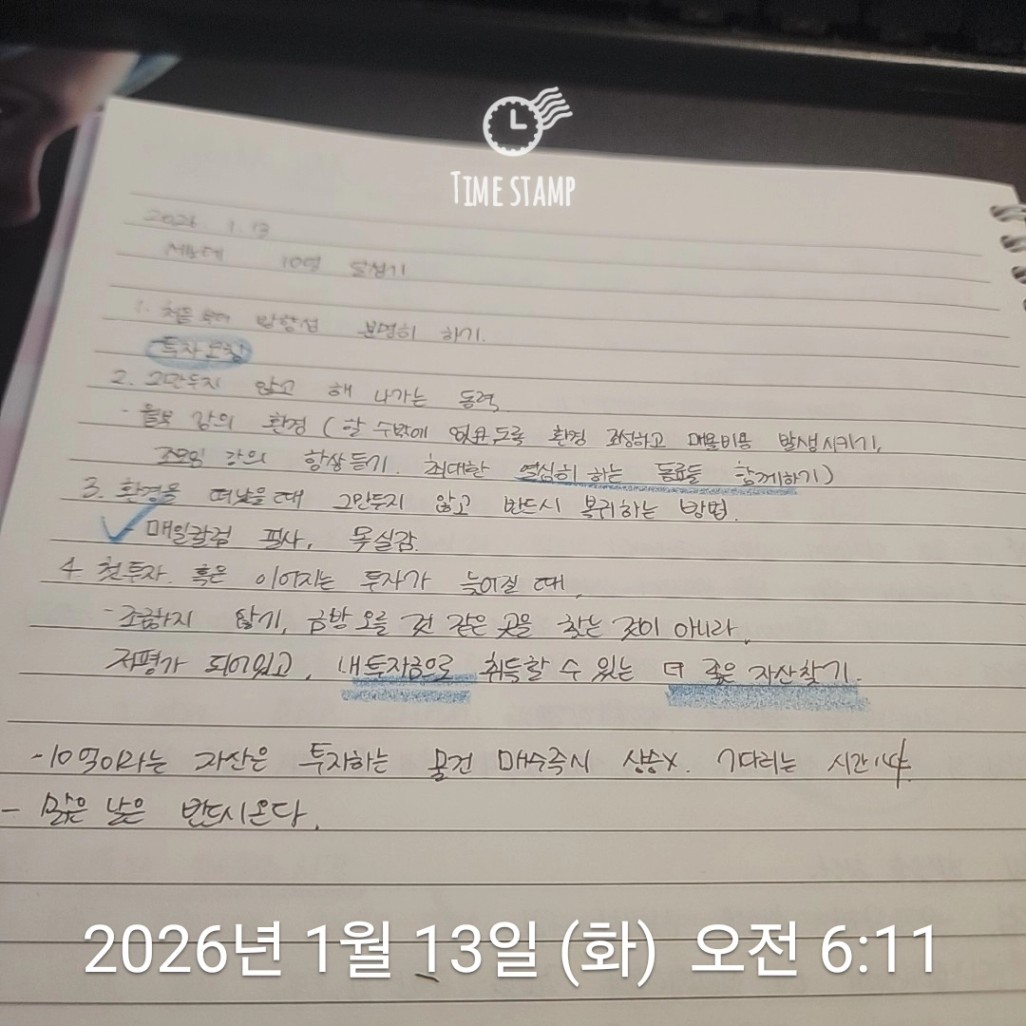 TIME STAMP
2026. 1. 13
10억 달성기
1. 처음부터 방향성 분명히 하기.
투자요청
2. 그만두지 않고 해 나가는 동력
- 월부 강의 환경 (할 수밖에 없도록 환경 조성하고 매몰비용 발생시키기,
조모임 강의 항상듣기. 최대한 열심히 하는 동료들 함께하기)
3. 환경을 떠났을때 그만두지 않고 반드시 복귀하는 방법.
- 매일칼럼 필사, 목실감.
4. 첫투자. 혹은 이어지는 투자가 늦어질 때,
- 조급하지 않기, 금방 오를 것 같은 곳을 찾는 것이 아니라,
저평가 되어있고, 내투자금으로 취득할 수 있는 더 좋은 자산찾기.
- 10억이라는 자산은 투자하는 물건 매수즉시 상승X. 기다리는 시간
- 맑은 날은 반드시온다.
2026년 1월 13일 (화) 오전 6:11